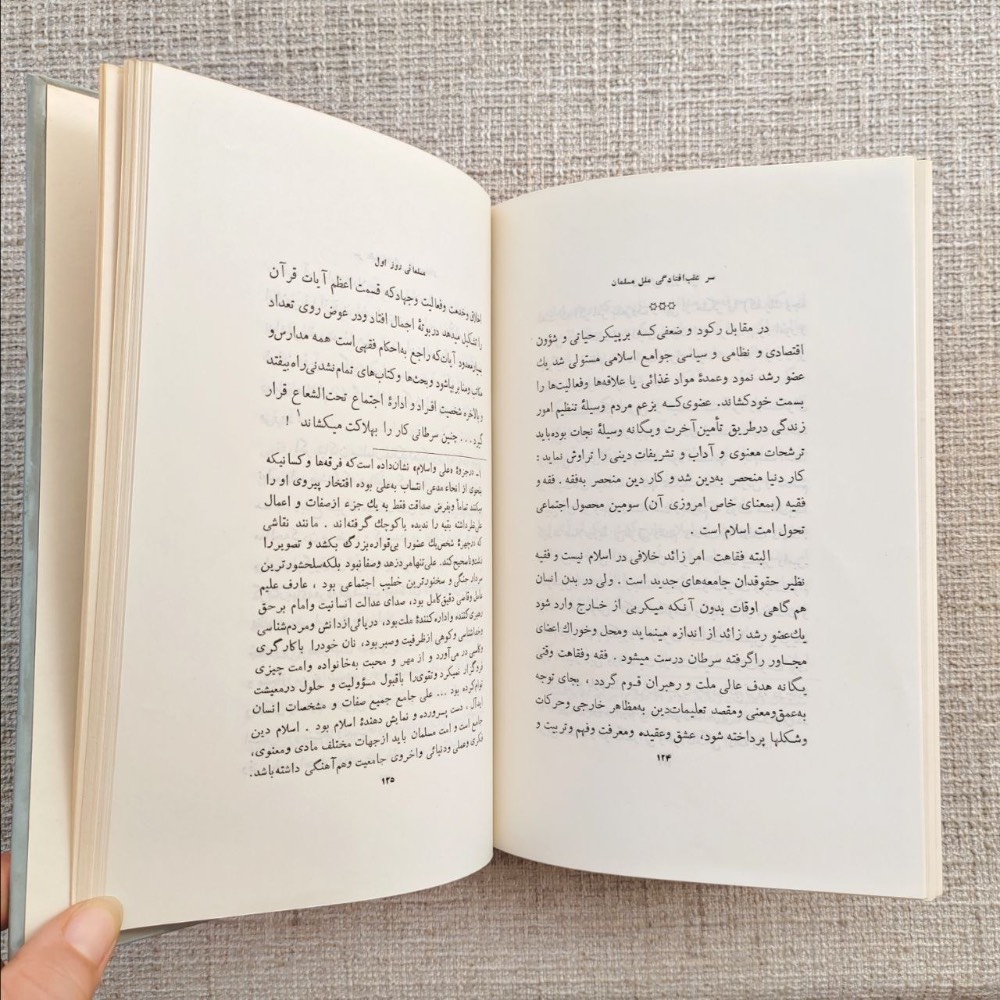 سر عقب‌افتادگی ملل مسلمان
در مقابل رکود و ضعفی‌که بر پیکر حیاتی و شؤون
اقتصادی و نظامی و سیاسی جوامع اسلامی مستولی شد یك
عضو رشد نمود وعمدهٔ مواد غذائی یا علاقه‌ها وفعالیت‌ها را
بسمت خودکشاند. عضوی‌که بزعم مردم وسیلهٔ تنظیم امور
زندگی درطریق تأمین‌آخرت ویگانه وسیلهٔ نجات بوده‌باید
ترشحات معنوی و آداب و تشریفات دینی را تراوش نماید :
کار دنیا منحصر به‌دین شد و کار دین منحصر به‌فقه . فقه و
فقیه (بمعنای خاص امروزی آن) سومین محصول اجتماعی
تحول امت اسلام است .
البته فقاهت امر زائد خلافی در اسلام نیست و فقیه
نظیر حقوقدان جامعه‌های جدید است . ولی در بدن انسان
هم گاهی اوقات بدون آنکه میکربی از خارج وارد شود
یك‌عضو رشد زائد از اندازه مینماید ومحل وخوراك اعضای
مجاور راگرفته سرطان درست میشود . فقه وفقاهت وقتی
یگانه هدف عالی ملت و رهبران قوم گردد ، بجای توجه
به‌عمق‌ومعنی و مقصد تعلیمات‌دین به‌مظاهر خارجی وحرکات
وشکلها پرداخته شود، عشق وعقیده ومعرفت وفهم وتربیت و
۱۲۴
مسلمانی روز اول
اخلاق وخدمت وفعالیت وجهادکه قسمت اعظم آیات قرآن
را تشکیل میدهد دربوتهٔ اجمال افتاد ودر عوض روی تعداد
بسیار معدود آیات‌که راجع به‌احکام فقهی‌است همه مدارس‌و
مکاتب ومنابر بپاشود وبحث‌ها وکتاب‌های تمام‌نشدنی‌راه بیفتد
و بالاخره شخصیت افراد و ادارهٔ اجتماع تحت‌الشعاع قرار
گیرد ... چنین سرطانی کار را بهلاکت میکشاند۱ !
۱ـ درجزوهٔ «علی واسلام» نشان‌داده است‌که فرقه‌ها وکسانیکه
بنحوی از انحاء مدعی انتساب به‌علی بوده افتخار پیروی او را
میکنند تماماً وبفرض صداقت فقط به‌یك جزء ازصفات و اعمال
علی‌نظرداشته بقیه را ندیده یاکوچك گرفته‌اند . مانند نقاشی
که درچهرهٔ شخص‌یك عضورا بی‌قواره‌بزرگ بکشد و تصویر را
ناصحیح‌کند. علی‌تنهامردزهد وصفانبود بلکه‌سلحشورترین
سردار جنگی و سخنورترین خطیب اجتماعی بود ، عارف علیم
عامل وقاضی دقیق‌کامل بود، صدای عدالت انسانیت وامام برحق
رهبری‌کننده واداره‌کنندهٔ ملت‌بود، دریائی‌ازدانش ومردم‌شناسی
وخداشناسی وکوهی ازظرفیت وصبربود، نان خودرا باکارگری
وکسی در می‌آورد و از مهر و محبت به‌خانواده وامت چیزی
فروگزار نمیکرد وتقوی‌را باقبول مسؤولیت و حلول درمعیشت
توأم‌کرده بود ... علی جامع جمیع صفات و مشخصات انسان
ایده‌آل ، دست پرورده و نمایش دهندهٔ اسلام بود . اسلام دین
جامع است و امت مسلمان باید ازجهات مختلف مادی ومعنوی،
فکری وعملی ودنیائی واخروی جامعیت وهم‌آهنگی داشته‌باشد.
۱۲۵